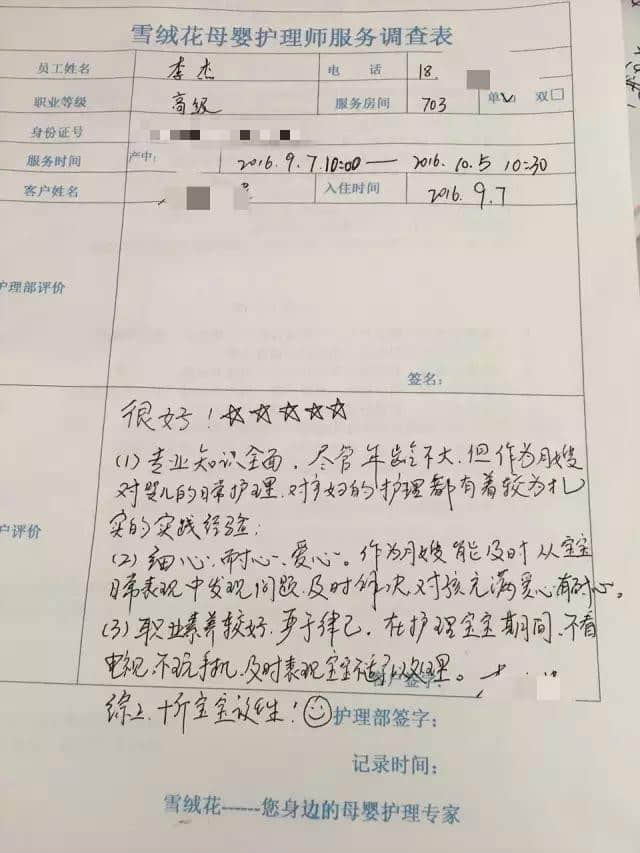 雪绒花母婴护理师服务调查表
员工姓名 李杰 电 话 18
职业等级 高级 服务房间 703 单√ 双□
身份证号
服务时间 产中: 2016.9.7.10:00—2016.10.5 10:30
客户姓名 入住时间 2016.9.7
护理部评价
签名:
很好!☆☆☆☆☆
(1)专业知识全面,尽管年龄不大,但作为月嫂
对婴儿的日常护理,对产妇的护理都有着较为扎
实的实践经验;
户评价
(2)细心、耐心、爱心。作为月嫂能及时从宝宝
日常表现中发现问题,及时解决,对孩充满爱心有耐心。
(3)职业素养较好,严于律己,在护理宝宝期间,不看
电视,不玩手机,及时表现宝宝不适予以处理。
客户签字:
综上,
宝宝
!☺护理部签字:
记录时间:
雪绒花------您身边的母婴护理专家